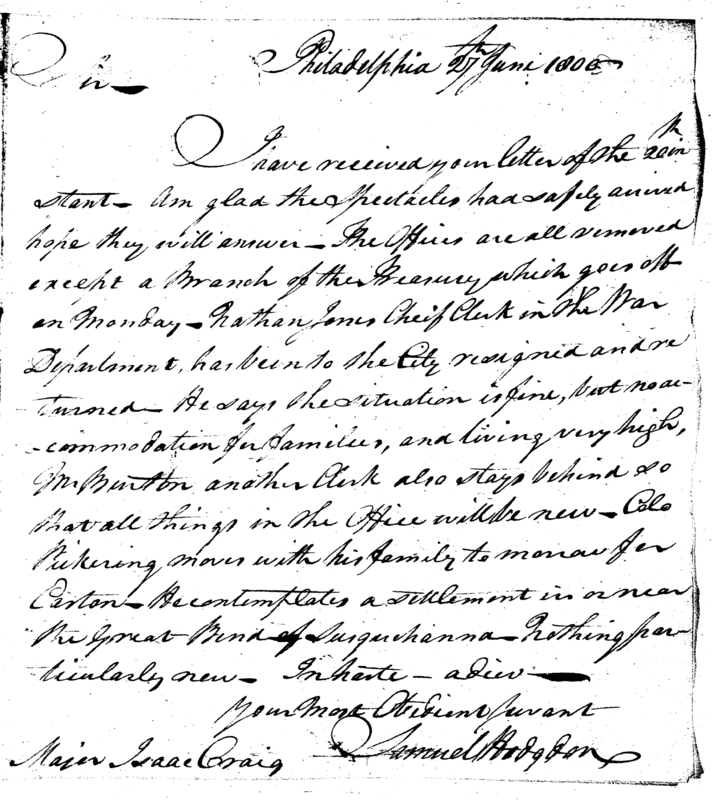 Philadelphia 27th June 1800
Sir
I have received your letter of the 20th in
stant – Am glad the Spectacles had safely arrived
hope they will answer – The Offices are all removed
except a Branch of the Treasury which goes off
on Monday – Nathan Jones Cheif Clerk in the War
Department, has been to the City resigned and re
turned – He says the situation is fine, but no ac-
-commodation for families, and living very high,
Mr Burton another Clerk also stays behind so
that all things in the Office will be new – Colo
Pickering moves with his family tomorrow for
Easton – He contemplates a settlement in or near
the Great Bend of Susquehanna – Nothing par-
ticularly new – In haste – adieu –
Your Most Obedient Servant
Samuel Hodgdon
Major Isaac Craig